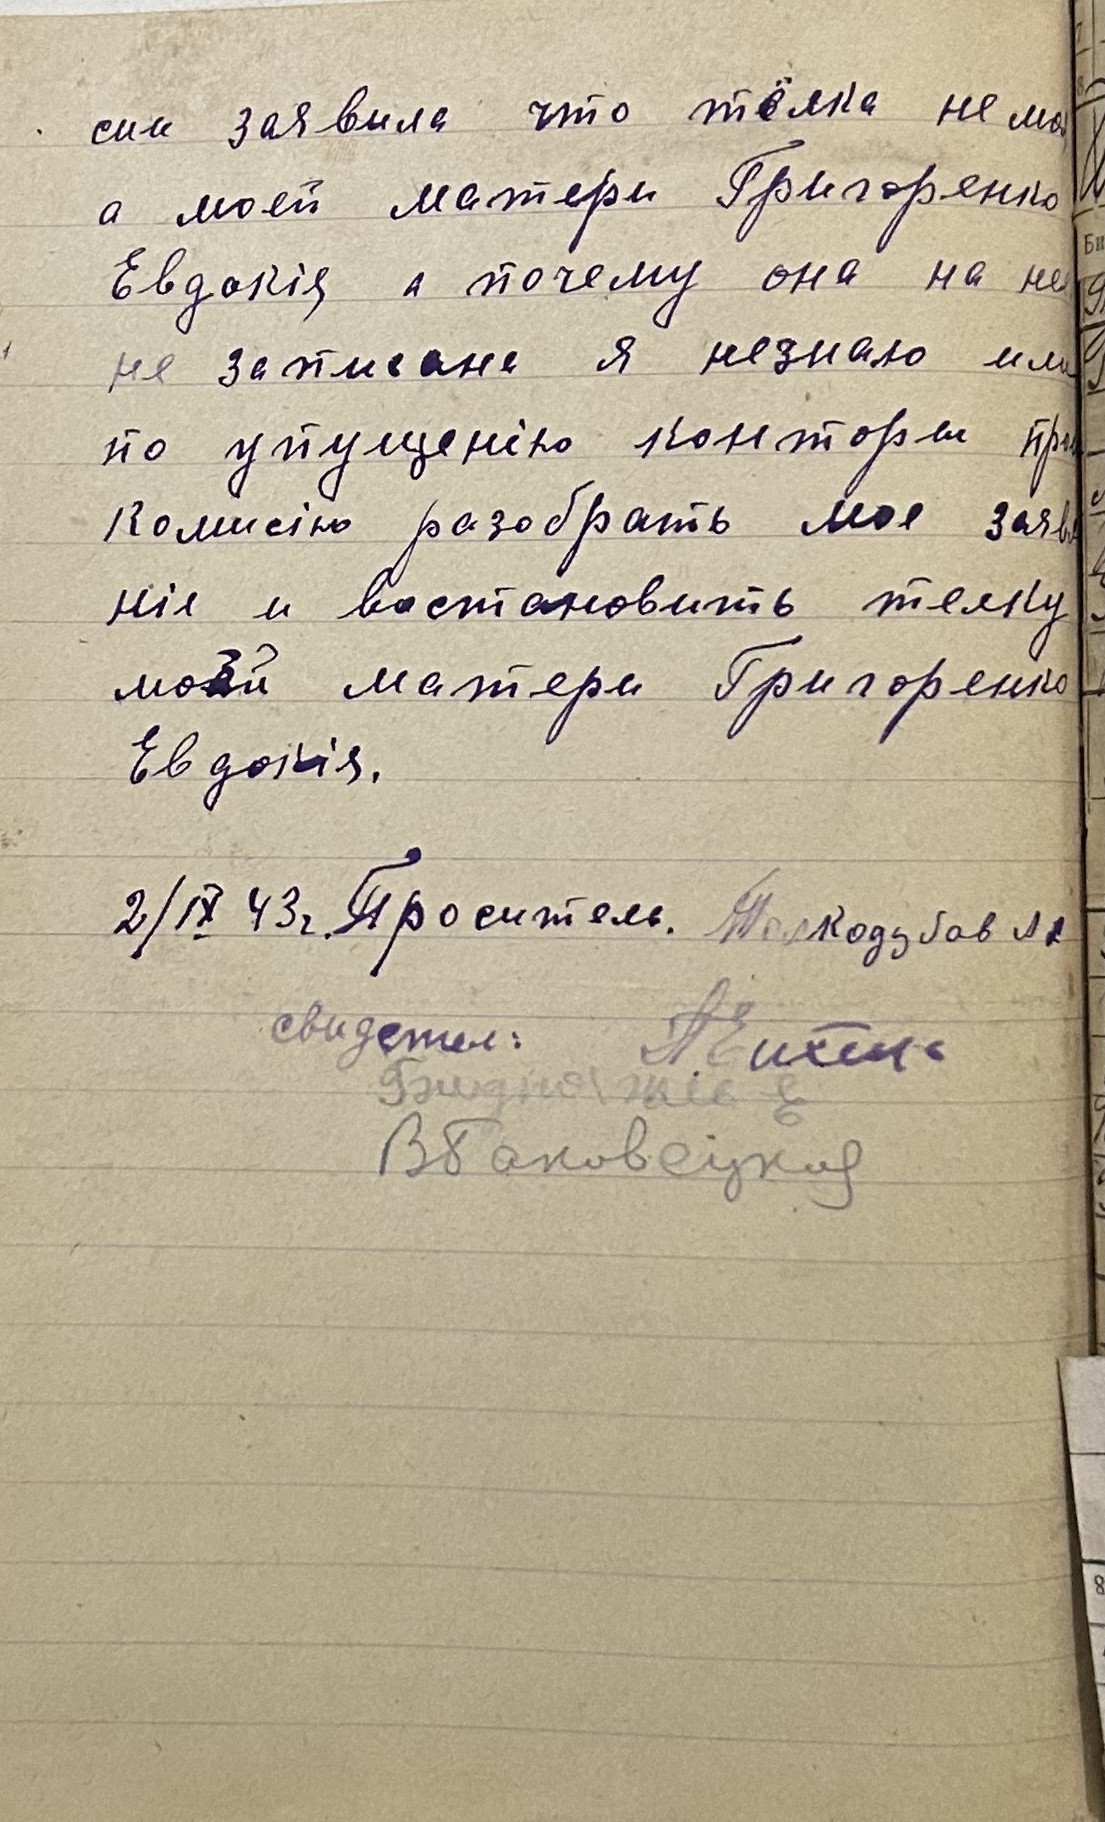 сии заявила что тёлка не мо
а моей матери Григоренко
Евдокія а почему она на не
не записана я незнаю или
по упущенію конторы про
комисію разобрать мое заяв
ніе и востановить телку
моей матери Григоренко
Евдокія.
2/IX 43г. Проситель.
свидетел: